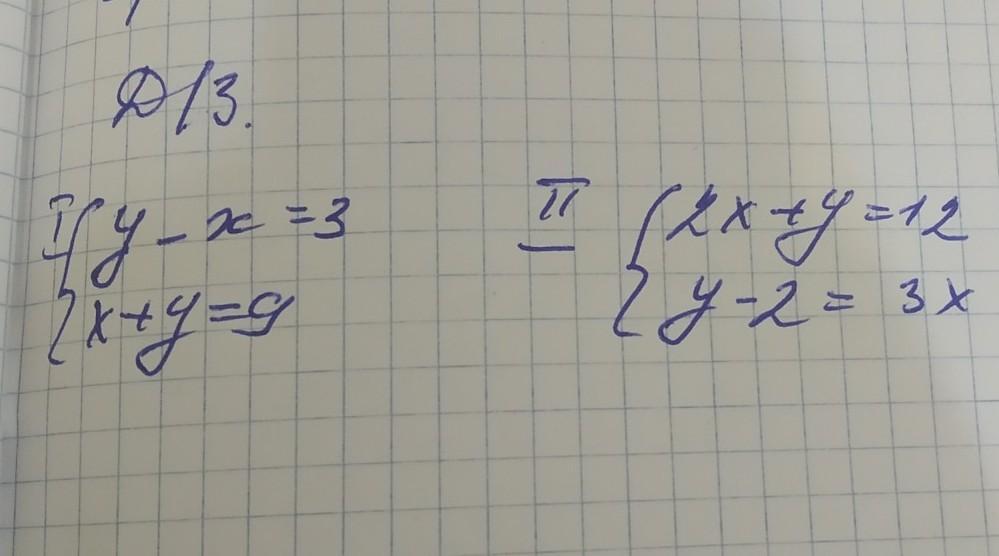 Д/З.
I { y - x = 3
{ x + y = 9
II { 2x + y = 12
{ y - 2 = 3x